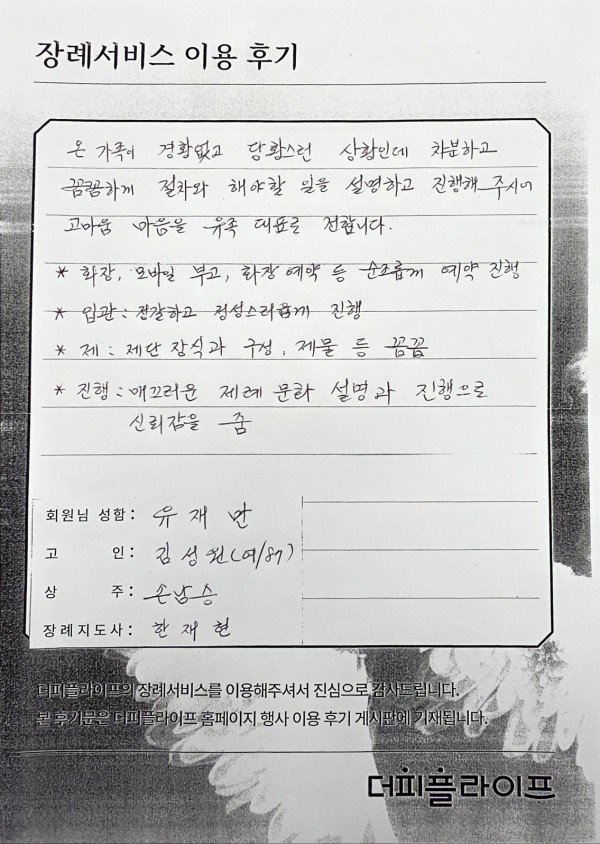 장례서비스 이용 후기
온 가족이 경황없고 당황스런 상황인데 차분하고
꼼꼼하게 절차와 해야할 일을 설명하고 진행해 주시어
고마움 마음을 유족 대표로 전합니다.
* 화장, 모바일 부고, 화장예약 등 순조롭게 예약 진행
* 입관 : 정갈하고 정성스러웁게 진행
* 제 : 제단 장식과 구성, 제물 등 꼼꼼
* 진행 : 매끄러운 제례 문화 설명과 진행으로
신뢰감을 줌
회원님 성함 : 유재만
고 인 : 김성원(여/87)
상 주 : 손남승
장례지도사 : 한재현
더피플라이프의 장례서비스를 이용해주셔서 진심으로 감사드립니다.
본 후기문은 더피플라이프 홈페이지 행사 이용 후기 게시판에 기재됩니다.
더피플라이프